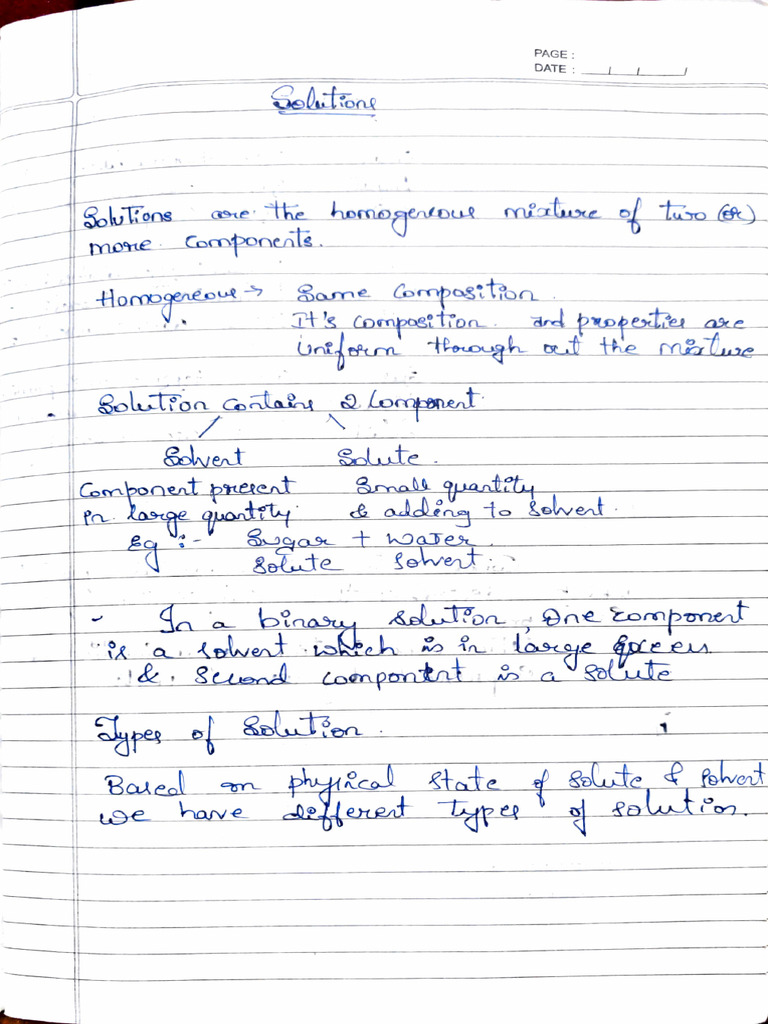 PAGE :
DATE : __/__/__/
Solutions
Solutions are the homogeneous mixture of two (or)
more components.
Homogeneous → Same composition.
It's composition and properties are
uniform through out the mixture
Solution contains 2 Component.
Solvent Solute.
Component present Small quantity
in large quantity & adding to solvent.
Eg :- Sugar + water.
Solute Solvent.
- In a binary solution, One component
is a solvent which is in large excess
& second component is a solute
Types of Solution.
Based on physical state of solute & solvent
we have different types of solution.